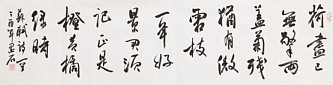 荷盡已
無擎雨
蓋菊殘
猶有傲
霜枝
一年好
景君須
記正是
橙黃橘
綠時
蘇軾詩